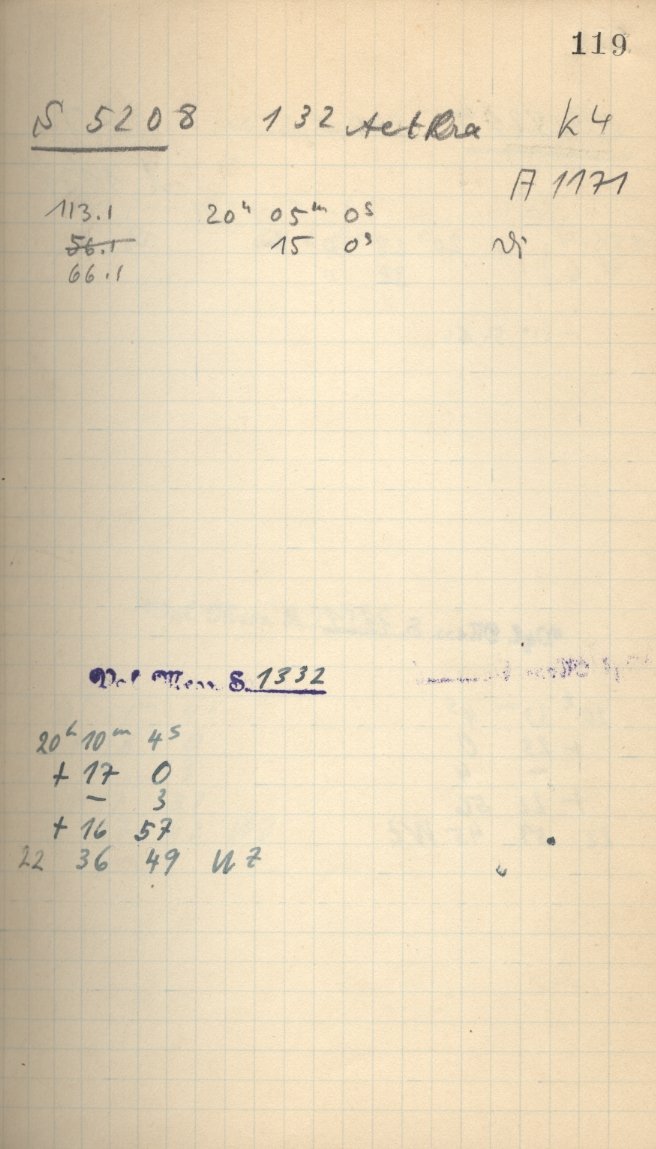 119
S 5208 132 Aethra K 4
A 1171
113.1 20h 05m 0s
56.1 15 0s
66.1
S. 1332
20h 10m 4s
+ 17 0
- 3
+ 16 57
22 36 49 U Z